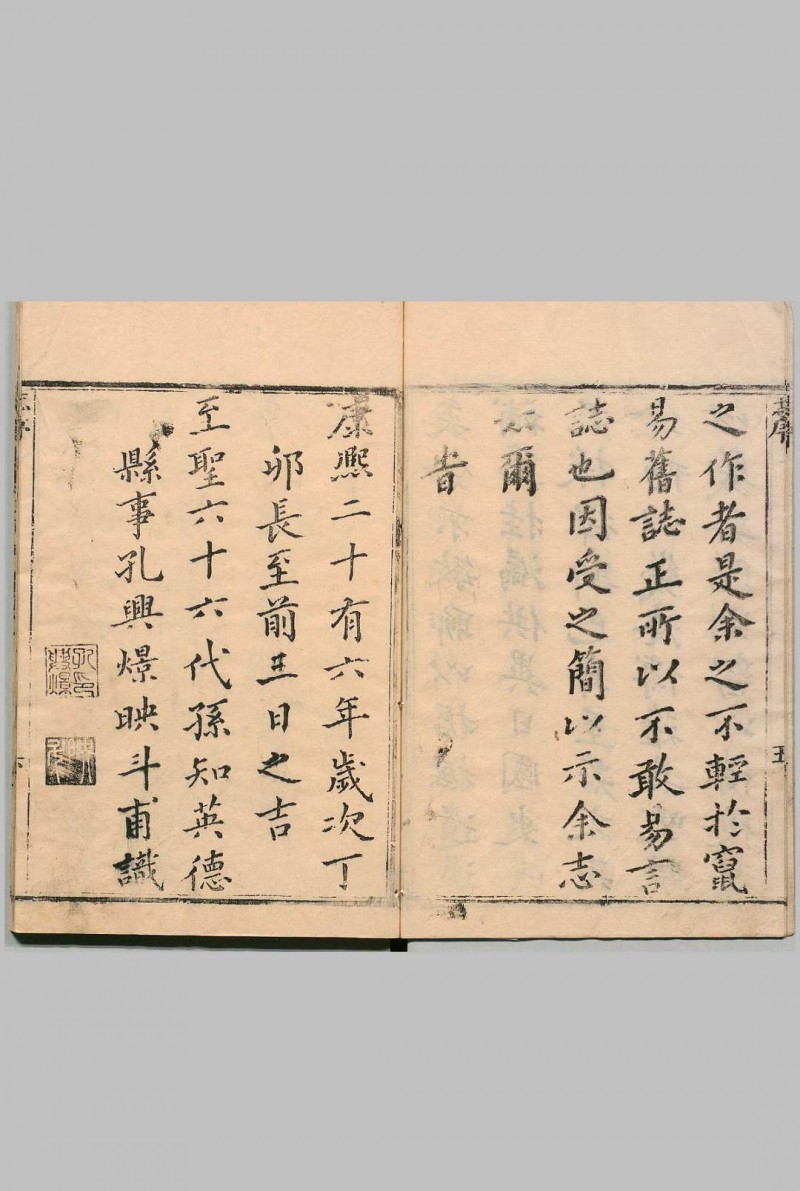 之作者是余之不輕於竄
易舊誌正所以不敢易言
誌也因受之簡以示余志
云爾
旹
康熙二十有六年歲次丁
卯長至前三日之吉
至聖六十六代孫知英德
縣事孔興燝映斗甫識
五